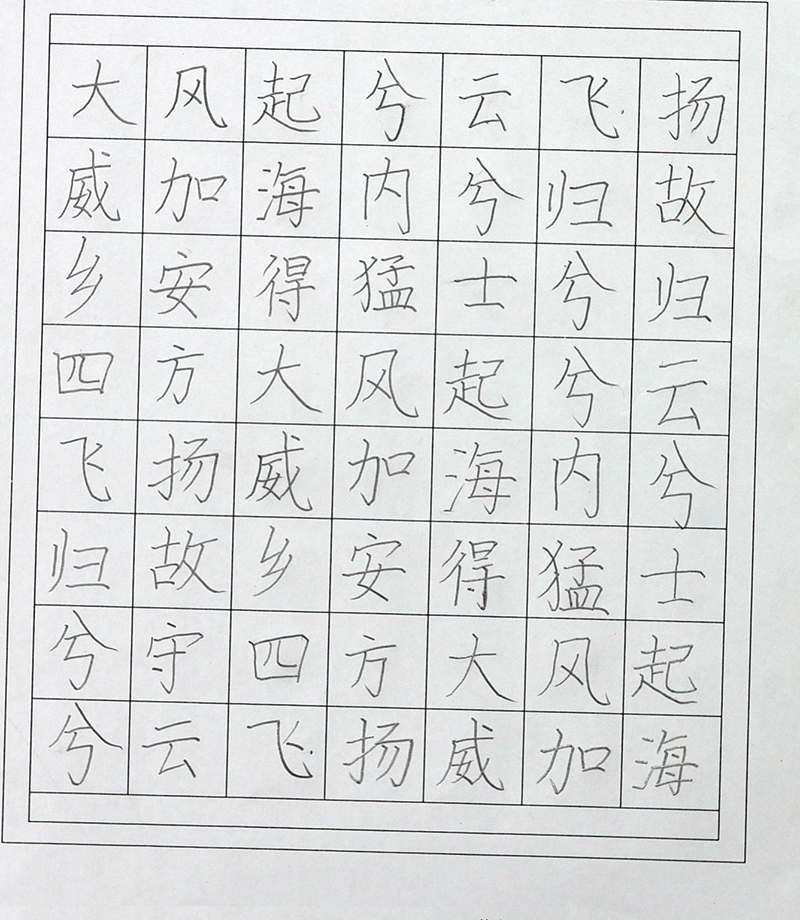 大风起兮云飞扬
威加海内兮归故
乡安得猛士兮归
四方大风起兮云
飞扬威加海内兮
归故乡安得猛士
兮守四方大风起
兮云飞扬威加海